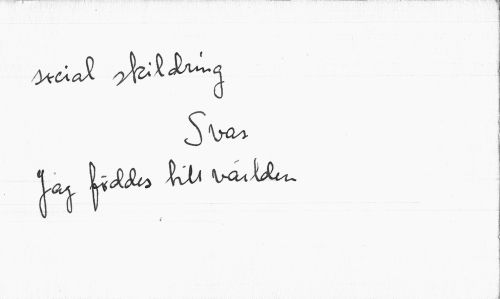 social skildring
Svas
Jag föddes till världen